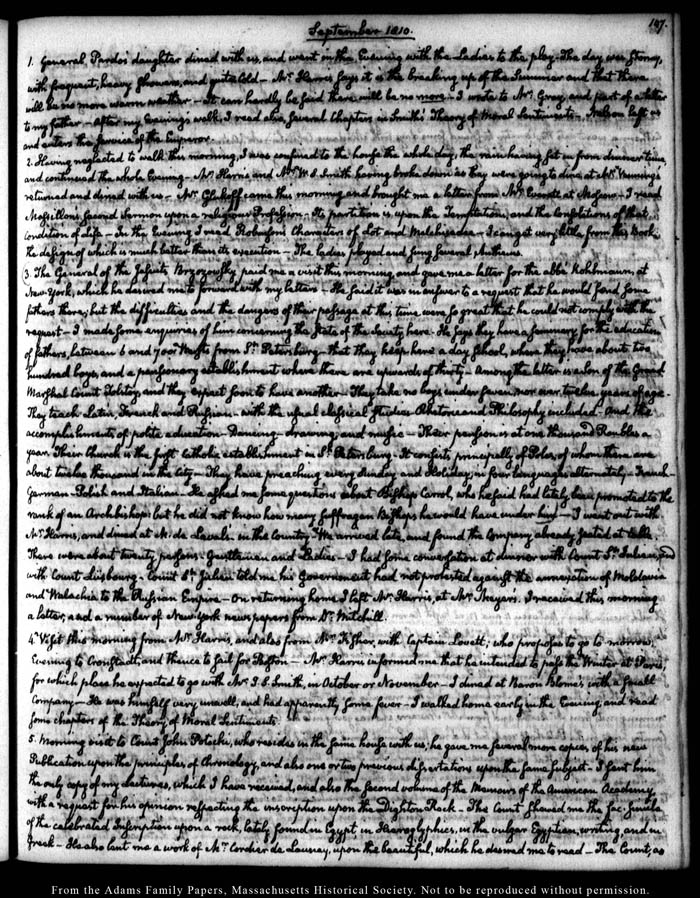 187.
September 1810.
1. General Pardo's daughter dined with us, and went in the Evening with the Ladies to the play. The day was stormy,
with frequent, heavy showers, and quite cold — Mr. Harris says it is the breaking up of the Summer and that there
will be no more warm weather — It can hardly be said there will be no more — I wrote to Mr. Gray, and part of a letter
to my father — After my Evening's walk, I read also several Chapters in Smith's Theory of Moral Sentiments — Nelson left us
and enters the service of the Emperor.
2. Having neglected to walk this morning, I was confined to the house the whole day; the rain having set in from dinner time,
and continued the whole Evening — Mr. Harris and Mr. W. S. Smith having broke down as they were going to dine at Mr.
returned and dined with us. Mr. Glukoff came this morning and brought me a letter from Mr. Everett at Moscow — I read
Massillon's second Sermon upon a religious Profession — Its partition is upon the Temptations, and the Consolations of that
condition of life — In the Evening I read Robinson's Characters of Lot and Melchisedec — I can get very little from this Book,
the design of which is much better than its execution — The Ladies played and sung several Anthems.
3. The General of the Jesuits Brzozowsky paid me a visit this morning, and gave me a letter for the abbé Kohlmann, at
New-York, which he desired me to forward with my letters — He said it was in answer to a request that he would send some
fathers there; but the difficulties and the dangers of their passage at this time were so great that he could not comply with the
request — I made some enquiries of him concerning the State of the Society here. He says they have a seminary for the education
of fathers, between 6 and 700 Wersts from St. Petersburg — that they keep here a day school, where they have about two
hundred boys, and a pensionary establishment where there are upwards of thirty — Among the latter is a son of the Grand
Marshal Count Tolstoy, and they expect soon to have another — They take no boys under seven, nor over twelve years of age —
They teach Latin, French and Russian — with the usual classical studies Rhetoric and Philosophy included — And the
accomplishments of polite education — Dancing — drawing, and music — Their pension is at one thousand Roubles a
year. Their Church is the first Catholic establishment in St. Petersburg. It consists principally of Poles, of whom there are
about twelve thousand in the City — They have preaching every Sunday and Holiday, in four languages alternately — French —
German — Polish and Italian — He asked me some questions about Bishop Carrol, who he said had lately been promoted to the
rank of an Archbishop: but he did not know how many suffragan Bishops he would have under him — I went out with
Mr. Harris, and dined at M. de Laval's in the Country — We arrived late, and found the Company already seated at table.
There were about twenty persons — Gentlemen and Ladies — I had some conversation at dinner with Count St. Julien, and
with Count Luxbourg. Count St. Julien told me his Government had not protested against the annexation of Moldavia
and Walachia to the Russian Empire — On returning home I left Mr. Harris, at Mr. Meyer's. I received this morning
a letter, and a number of New-York newspapers from Dr. Mitchill.
4. Visit this morning from Mr. Harris, and also from Mr. Fisher, with Captain Lovett; who proposes to go to morrow
Evening to Cronstadt, and thence to sail for Boston — Mr. Harris informed me that he intended to pass the Winter at Paris,
for which place he expected to go with Mr. J. S. Smith, in October or November — I dined at Baron Blome's with a small
Company — He was himself very unwell, and had apparently some fever — I walked home early in the Evening, and read
some chapters of the Theory of Moral Sentiments.
5. Morning visit to Count John Potocki, who resides in the same house with us; he gave me several more copies of his new
Publication upon the principles of Chronology, and also one or two previous dissertations upon the same subject — I sent him
the only copy of my Lectures, which I have received, and also the second volume of the Memoirs of the American Academy,
with a request for his opinion respecting the inscription upon the Dighton Rock — The Count shewed me the fac-simile
of the celebrated Inscription upon a rock, lately found in Egypt in Hieroglyphics, in the vulgar Egyptian, writing, and in
Greek — He also lent me a work of Mr. Cordier de Launay, upon the beautiful, which he desired me to read — The Count, as
From the Adams Family Papers, Massachusetts Historical Society. Not to be reproduced without permission.